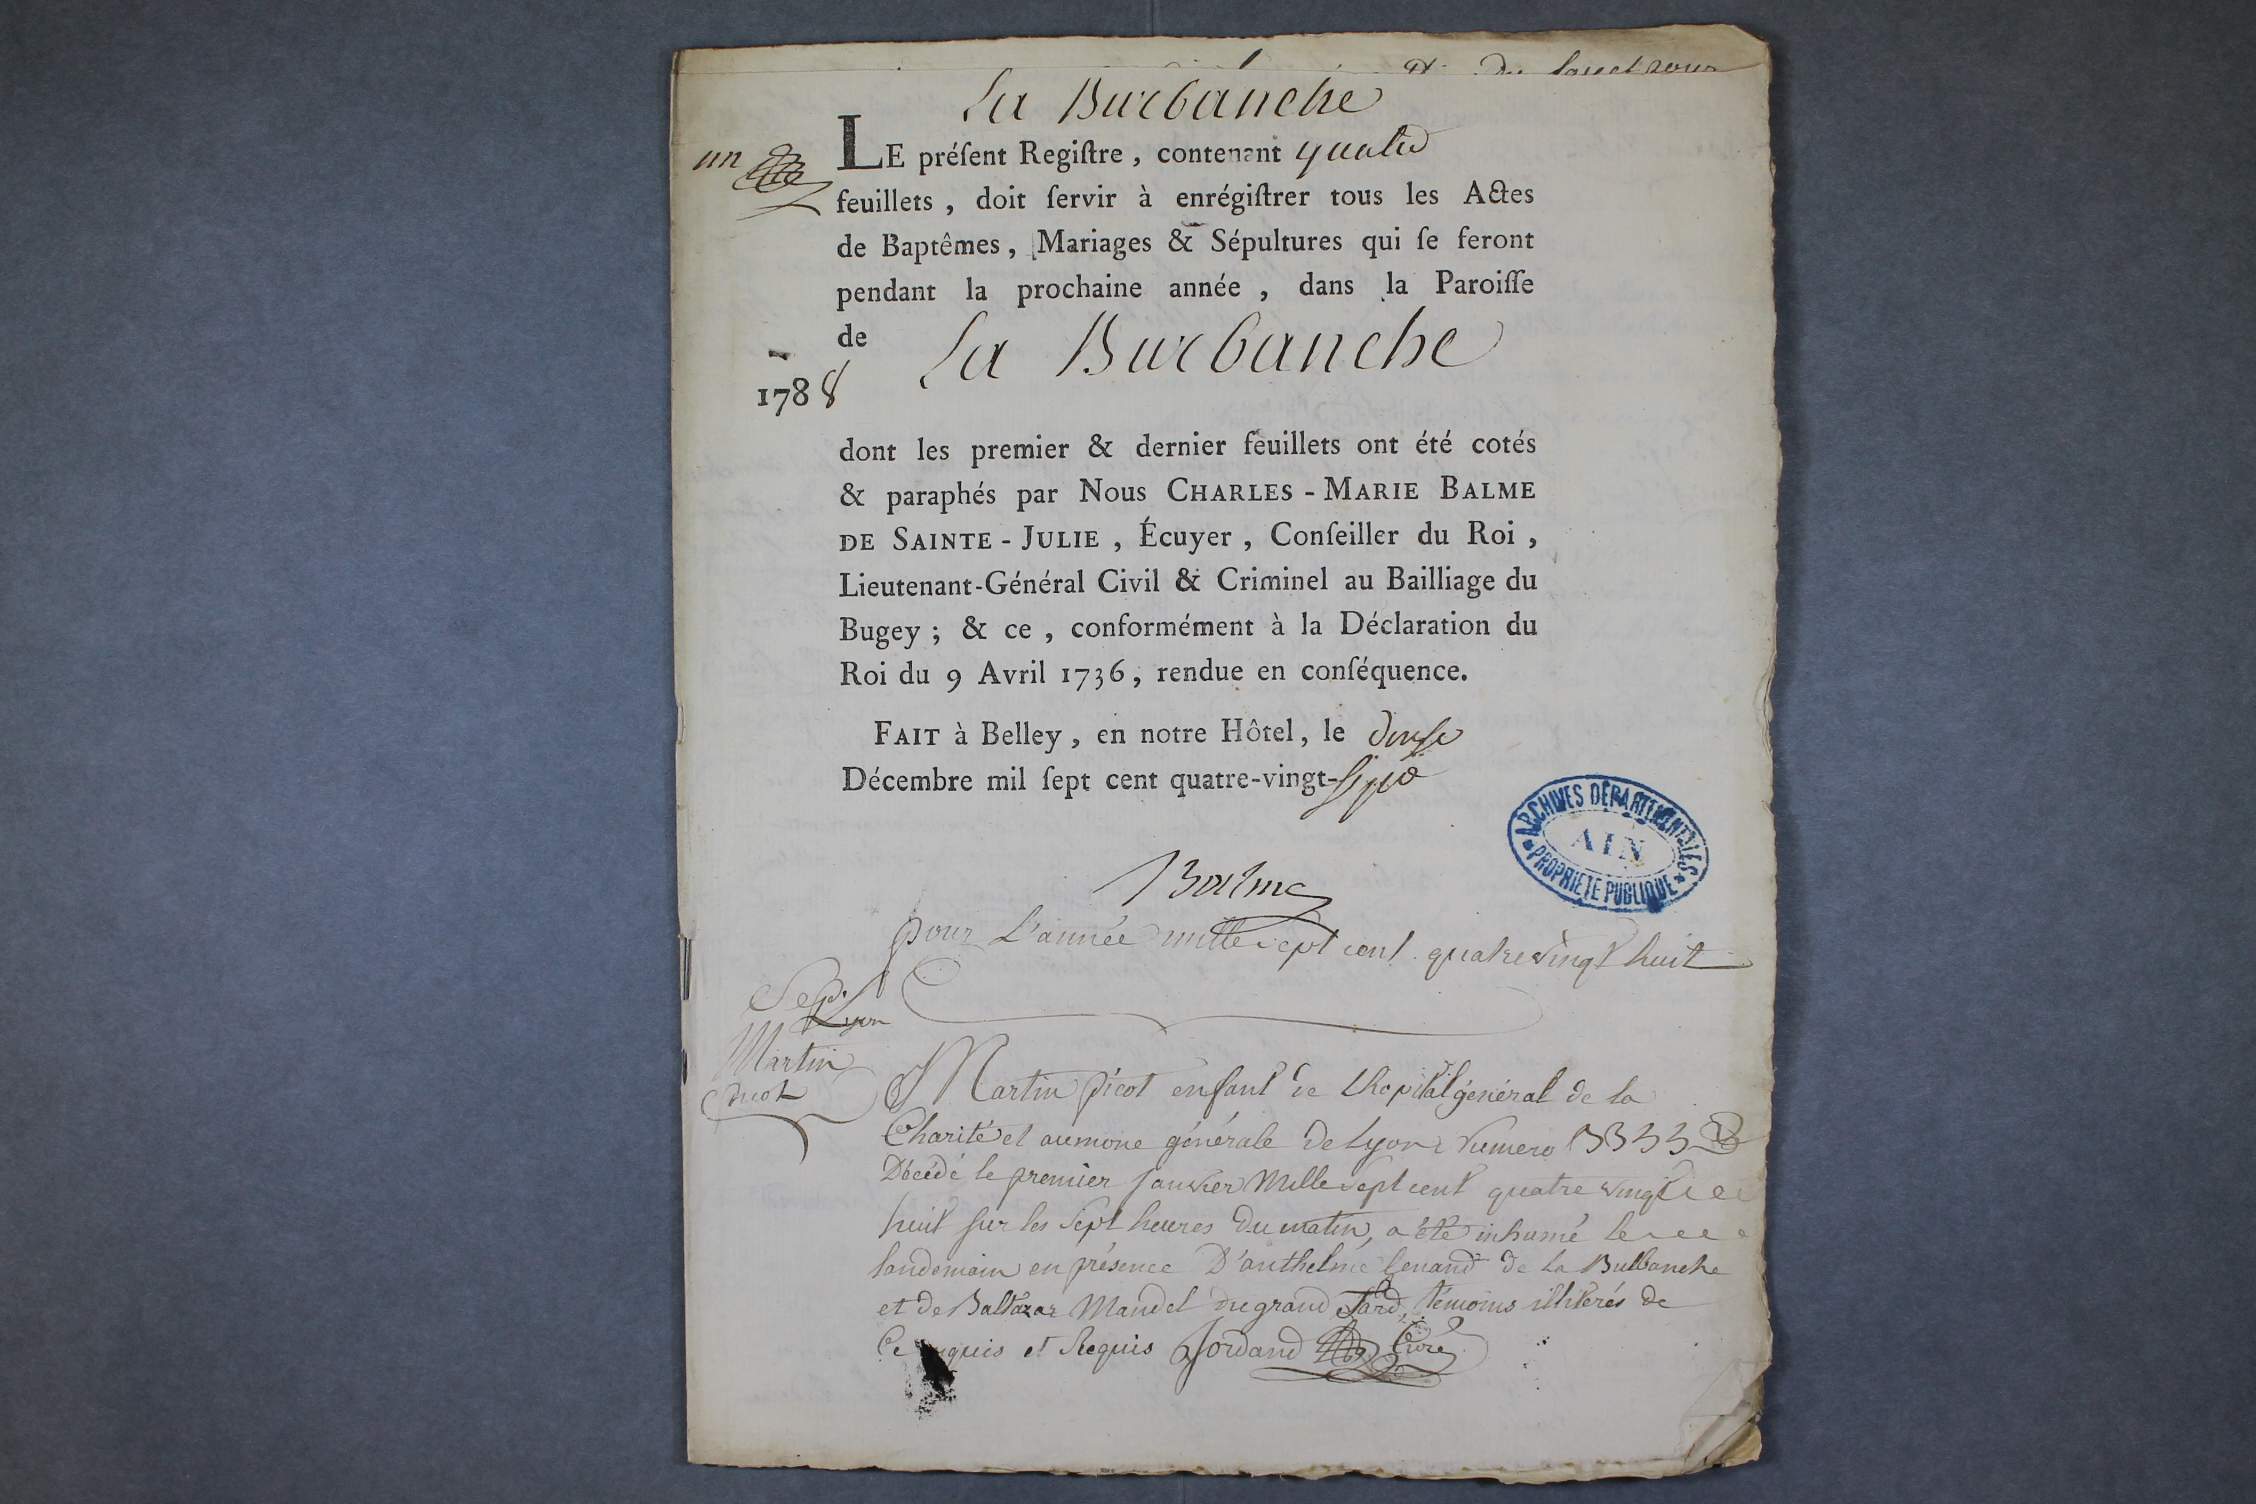 La Burbanche
un
LE préſent Regiſtre, contenant quatre
feuillets, doit ſervir à enrégiſtrer tous les Actes
de Baptêmes, Mariages & Sépultures qui ſe feront
pendant la prochaine année, dans la Paroiſſe
de La Burbanche
1788
dont les premier & dernier feuillets ont été cotés
& paraphés par Nous CHARLES-MARIE BALME
DE SAINTE-JULIE, Écuyer, Conſeiller du Roi,
Lieutenant-Général Civil & Criminel au Bailliage du
Bugey; & ce, conformément à la Déclaration du
Roi du 9 Avril 1736, rendue en conſéquence.
FAIT à Belley, en notre Hôtel, le douse
Décembre mil ſept cent quatre-vingt-sept
ARCHIVES DÉPARTEMENTALES
AIN
PROPRIÉTÉ PUBLIQUE
Balme
pour L'année mille sept cent quatre vingt huit
Sep.
Lyon
Martin
picot
Martin picot enfant de Lhopital général de la
Charité et aumone générale de Lyon Numero
Décédé le premier janvier Mille sept cent quatre vingt
huit sur les sept heures du matin, a été inhumé le
landemain en présence D'anthelme de La Bulbanche
et de Baltazar Mandel du grand témoins illitérés de
Ce enquis et Requis Jordand Curé